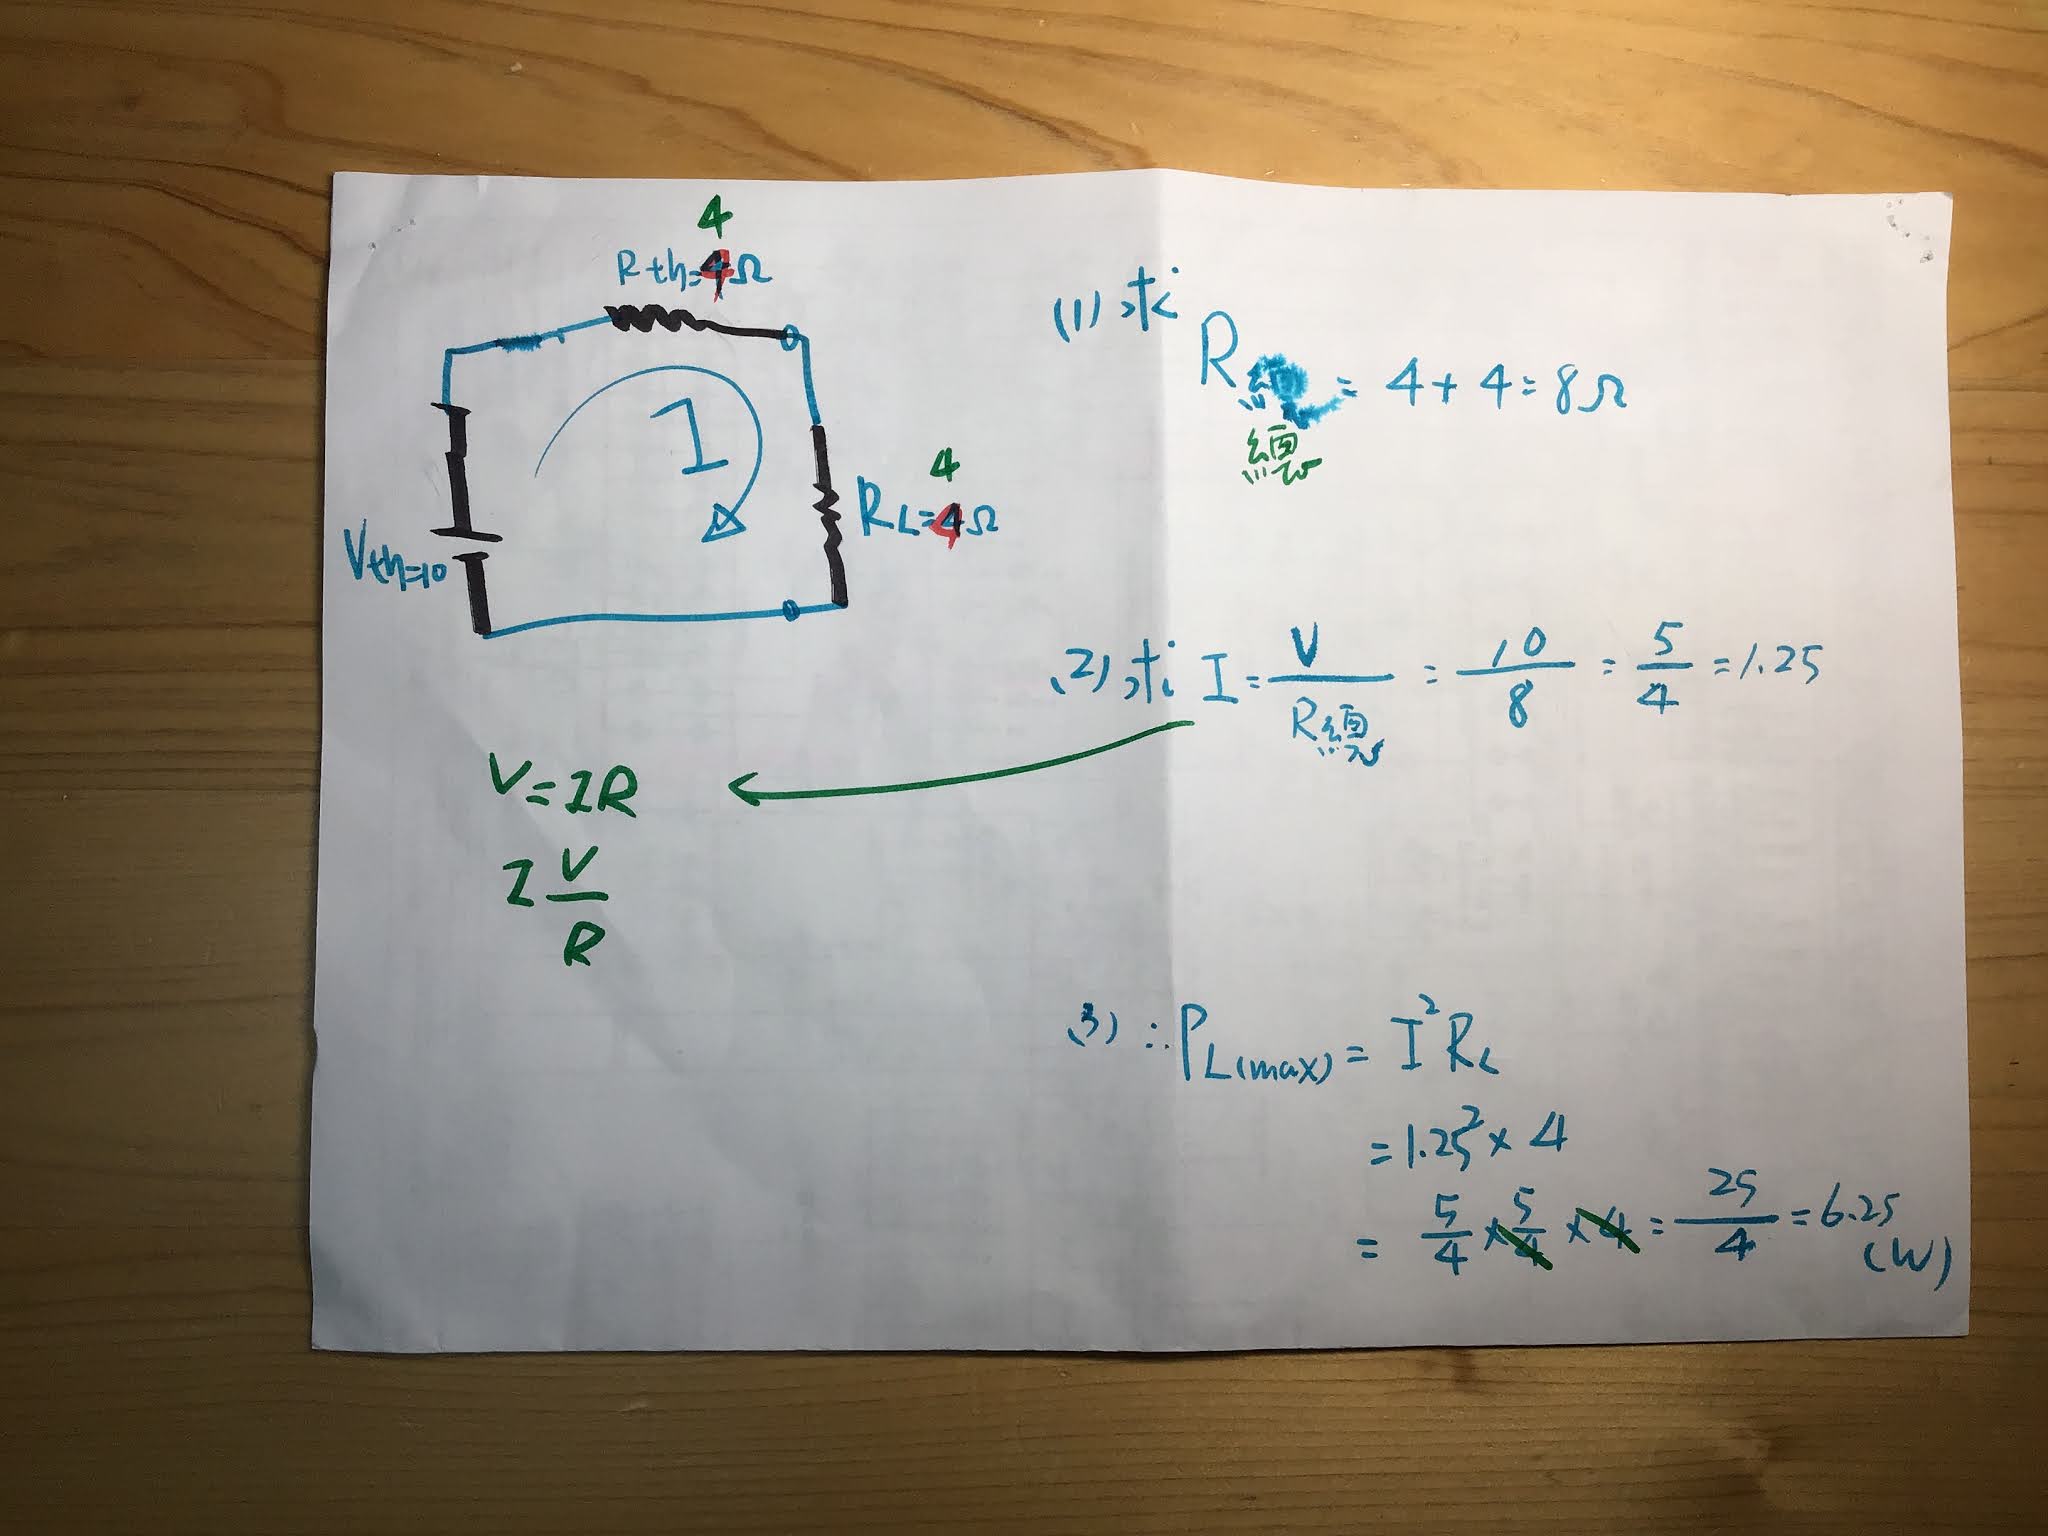 4
Rth=4Ω
I
4
RL=4Ω
Vth=10
(1) 求 R總 = 4+4=8Ω
總
(2) 求 I = V/R總 = 10/8 = 5/4 = 1.25
V=IR
I V/R
(3) ∴ PL(max) = I²RL
= 1.25² × 4
= 5/4 × 5/4 × 4 = 25/4 = 6.25 (W)